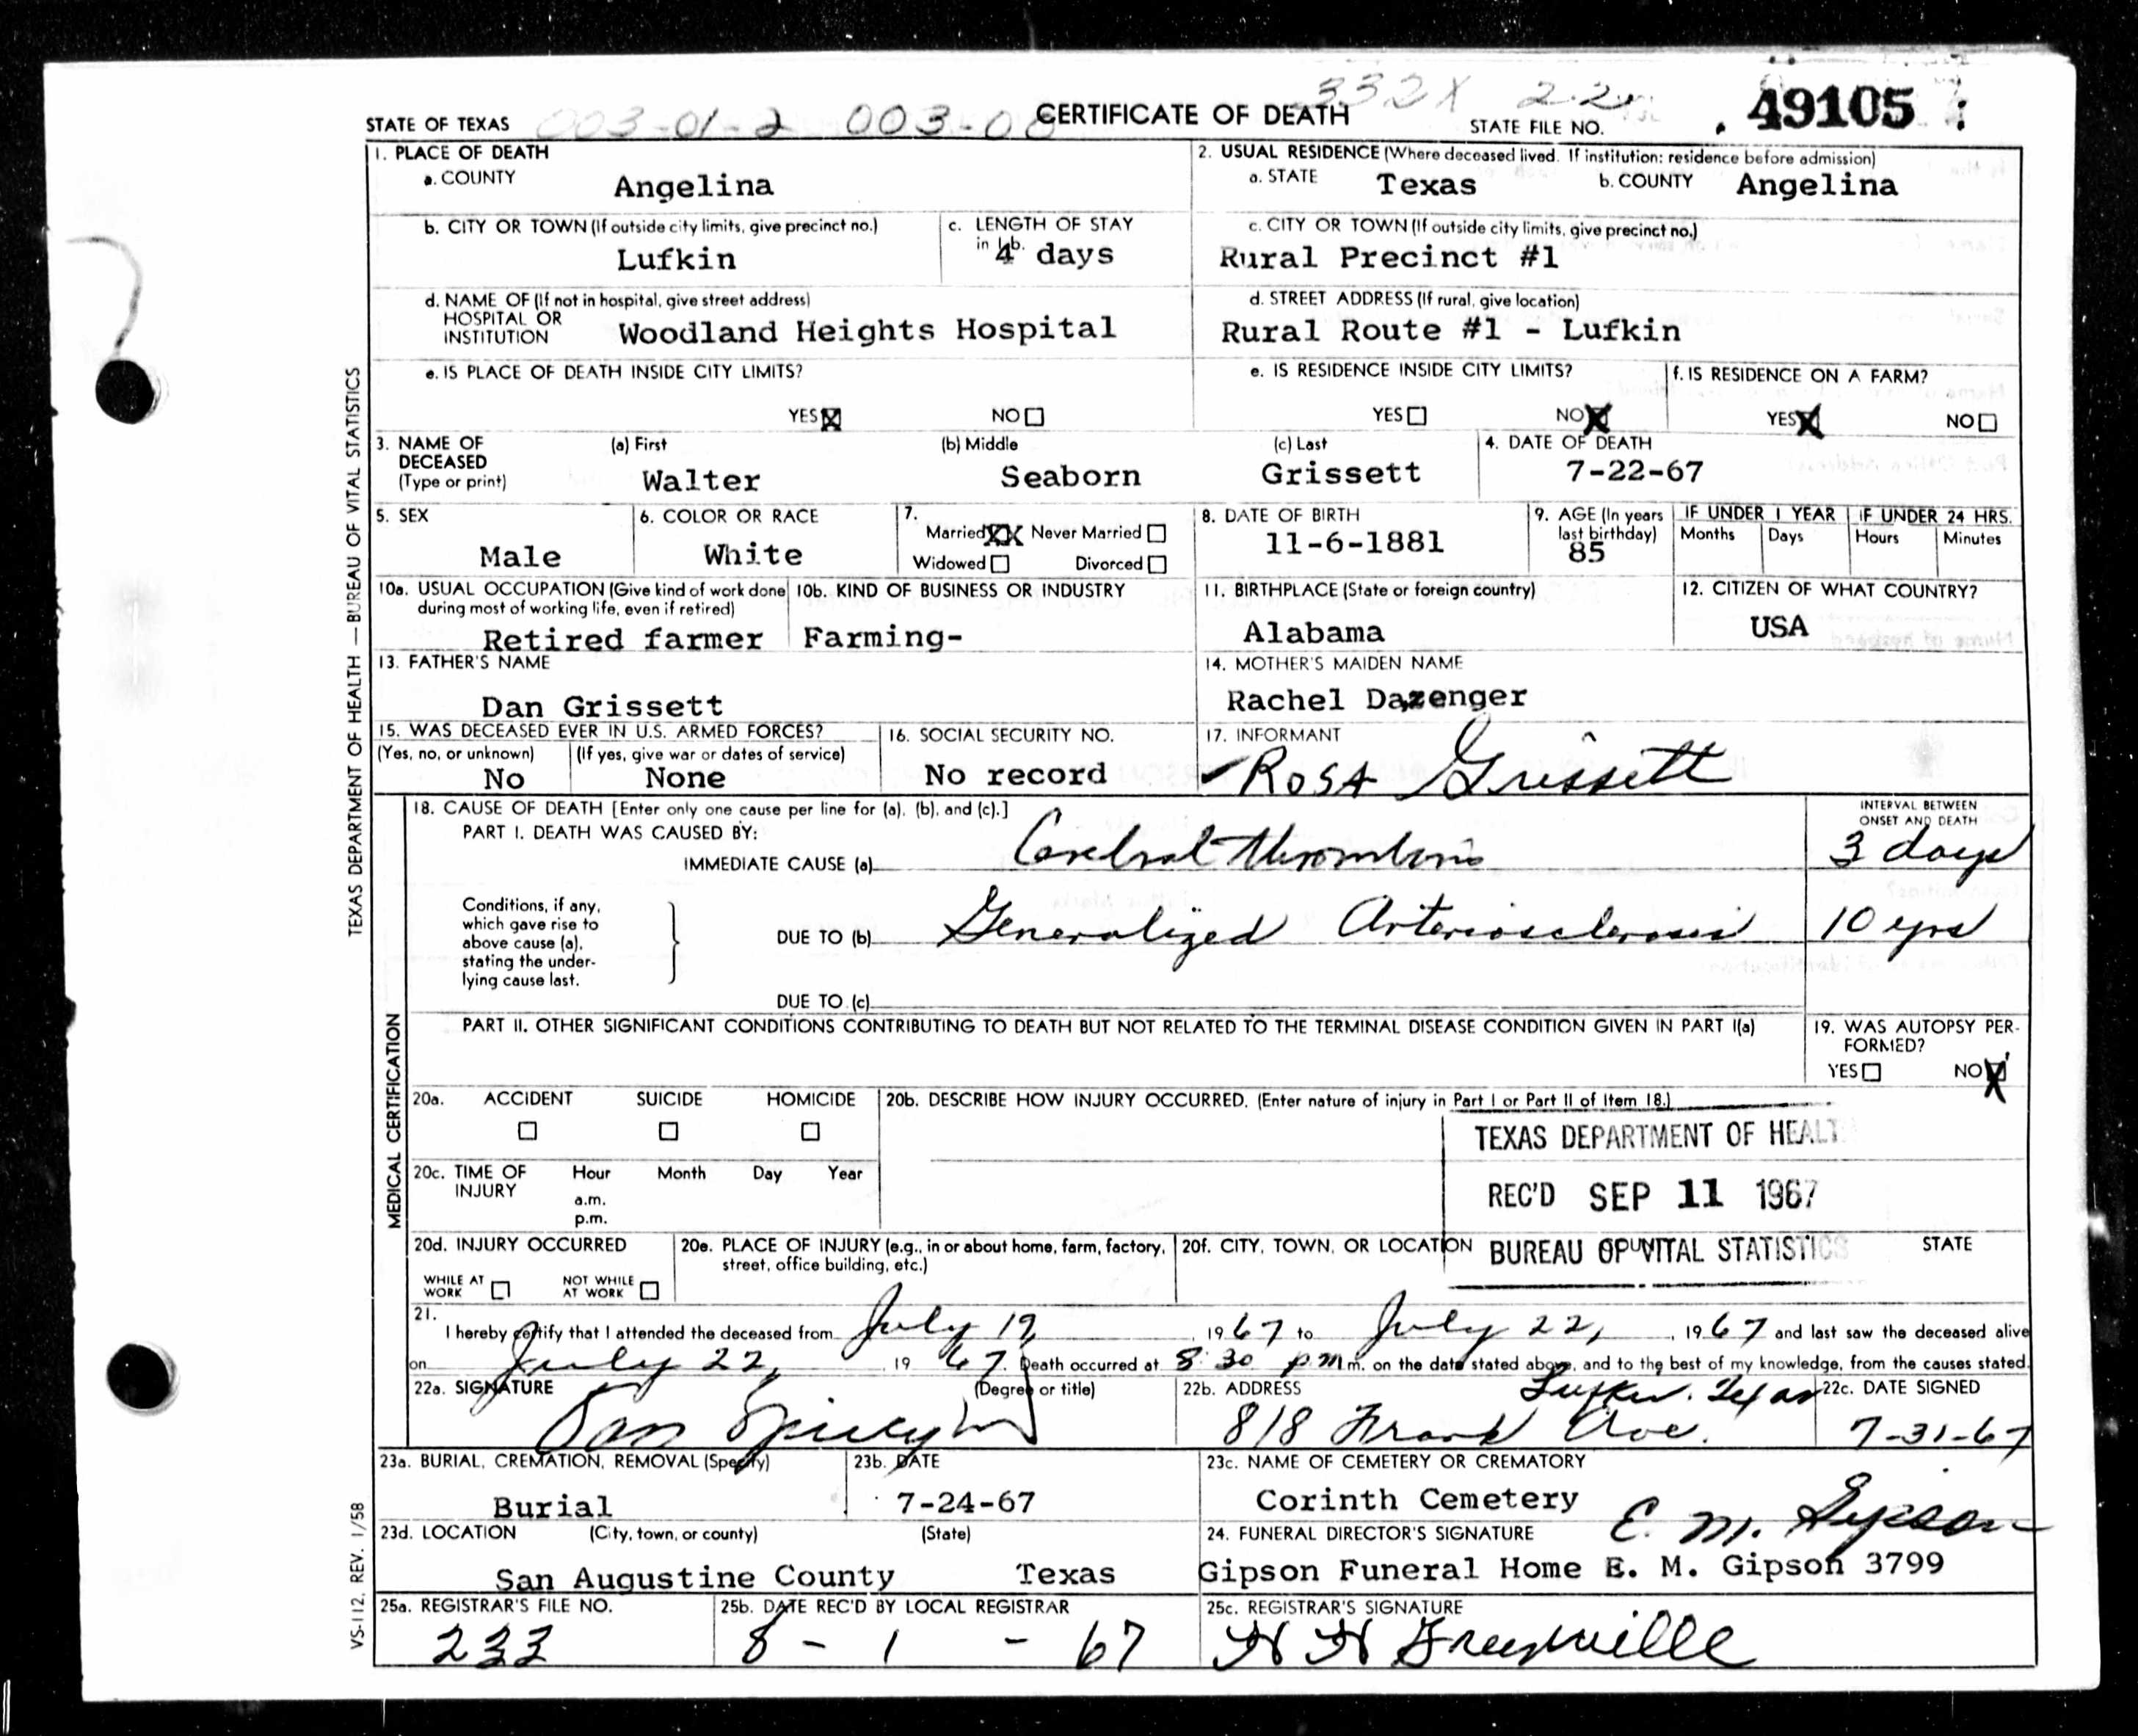 332X 2-2
STATE OF TEXAS 003-01-2 003-00 CERTIFICATE OF DEATH STATE FILE NO. 49105
1. PLACE OF DEATH
a. COUNTY Angelina
2. USUAL RESIDENCE (Where deceased lived. If institution: residence before admission)
a. STATE Texas b. COUNTY Angelina
b. CITY OR TOWN (If outside city limits, give precinct no.)
Lufkin
c. LENGTH OF STAY
in 1b.
4 days
c. CITY OR TOWN (If outside city limits, give precinct no.)
Rural Precinct #1
d. NAME OF (If not in hospital, give street address)
HOSPITAL OR
INSTITUTION Woodland Heights Hospital
d. STREET ADDRESS (If rural, give location)
Rural Route #1 - Lufkin
e. IS PLACE OF DEATH INSIDE CITY LIMITS?
YES NO
e. IS RESIDENCE INSIDE CITY LIMITS?
YES NO
f. IS RESIDENCE ON A FARM?
YES NO
3. NAME OF
DECEASED
(Type or print)
(a) First (b) Middle (c) Last
Walter Seaborn Grissett
4. DATE OF DEATH
7-22-67
5. SEX
Male
6. COLOR OR RACE
White
7.
Married XX Never Married
Widowed Divorced
8. DATE OF BIRTH
11-6-1881
9. AGE (In years
last birthday)
85
IF UNDER 1 YEAR
Months Days
IF UNDER 24 HRS.
Hours Minutes
10a. USUAL OCCUPATION (Give kind of work done
during most of working life, even if retired)
Retired farmer
10b. KIND OF BUSINESS OR INDUSTRY
Farming-
11. BIRTHPLACE (State or foreign country)
Alabama
12. CITIZEN OF WHAT COUNTRY?
USA
13. FATHER'S NAME
Dan Grissett
14. MOTHER'S MAIDEN NAME
Rachel Dazenger
15. WAS DECEASED EVER IN U.S. ARMED FORCES?
(Yes, no, or unknown) (If yes, give war or dates of service)
No None
16. SOCIAL SECURITY NO.
No record
17. INFORMANT
Rosa Grissett
18. CAUSE OF DEATH [Enter only one cause per line for (a), (b), and (c).]
INTERVAL BETWEEN
ONSET AND DEATH
PART I. DEATH WAS CAUSED BY:
IMMEDIATE CAUSE (a) Cerebral thrombosis 3 days
Conditions, if any,
which gave rise to
above cause (a),
stating the under-
lying cause last.
DUE TO (b) Generalized Arteriosclerosis 10 yrs
DUE TO (c)
PART II. OTHER SIGNIFICANT CONDITIONS CONTRIBUTING TO DEATH BUT NOT RELATED TO THE TERMINAL DISEASE CONDITION GIVEN IN PART I(a)
19. WAS AUTOPSY PER-
FORMED?
YES NO
20a. ACCIDENT SUICIDE HOMICIDE
20b. DESCRIBE HOW INJURY OCCURRED. (Enter nature of injury in Part I or Part II of Item 18.)
TEXAS DEPARTMENT OF HEALT
REC'D SEP 11 1967
BUREAU OF VITAL STATISTICS
20c. TIME OF
INJURY
Hour Month Day Year
a.m.
p.m.
20d. INJURY OCCURRED
WHILE AT
WORK
NOT WHILE
AT WORK
20e. PLACE OF INJURY (e.g., in or about home, farm, factory,
street, office building, etc.)
20f. CITY, TOWN, OR LOCATION STATE
21.
I hereby certify that I attended the deceased from July 19, 1967 to July 22, 1967 and last saw the deceased alive
on July 22, 1967. Death occurred at 8:30 p.m. m. on the date stated above, and to the best of my knowledge, from the causes stated.
22a. SIGNATURE (Degree or title)
Dan Spivey
22b. ADDRESS
Lufkin, Texas
818 Frank Ave.
22c. DATE SIGNED
7-31-67
23a. BURIAL, CREMATION, REMOVAL (Specify)
Burial
23b. DATE
7-24-67
23c. NAME OF CEMETERY OR CREMATORY
Corinth Cemetery
23d. LOCATION (City, town, or county) (State)
San Augustine County Texas
24. FUNERAL DIRECTOR'S SIGNATURE
E. M. Gipson
Gipson Funeral Home E. M. Gipson 3799
25a. REGISTRAR'S FILE NO.
233
25b. DATE REC'D BY LOCAL REGISTRAR
8 - 1 - 67
25c. REGISTRAR'S SIGNATURE
TEXAS DEPARTMENT OF HEALTH — BUREAU OF VITAL STATISTICS
MEDICAL CERTIFICATION
VS-112, REV. 1/58